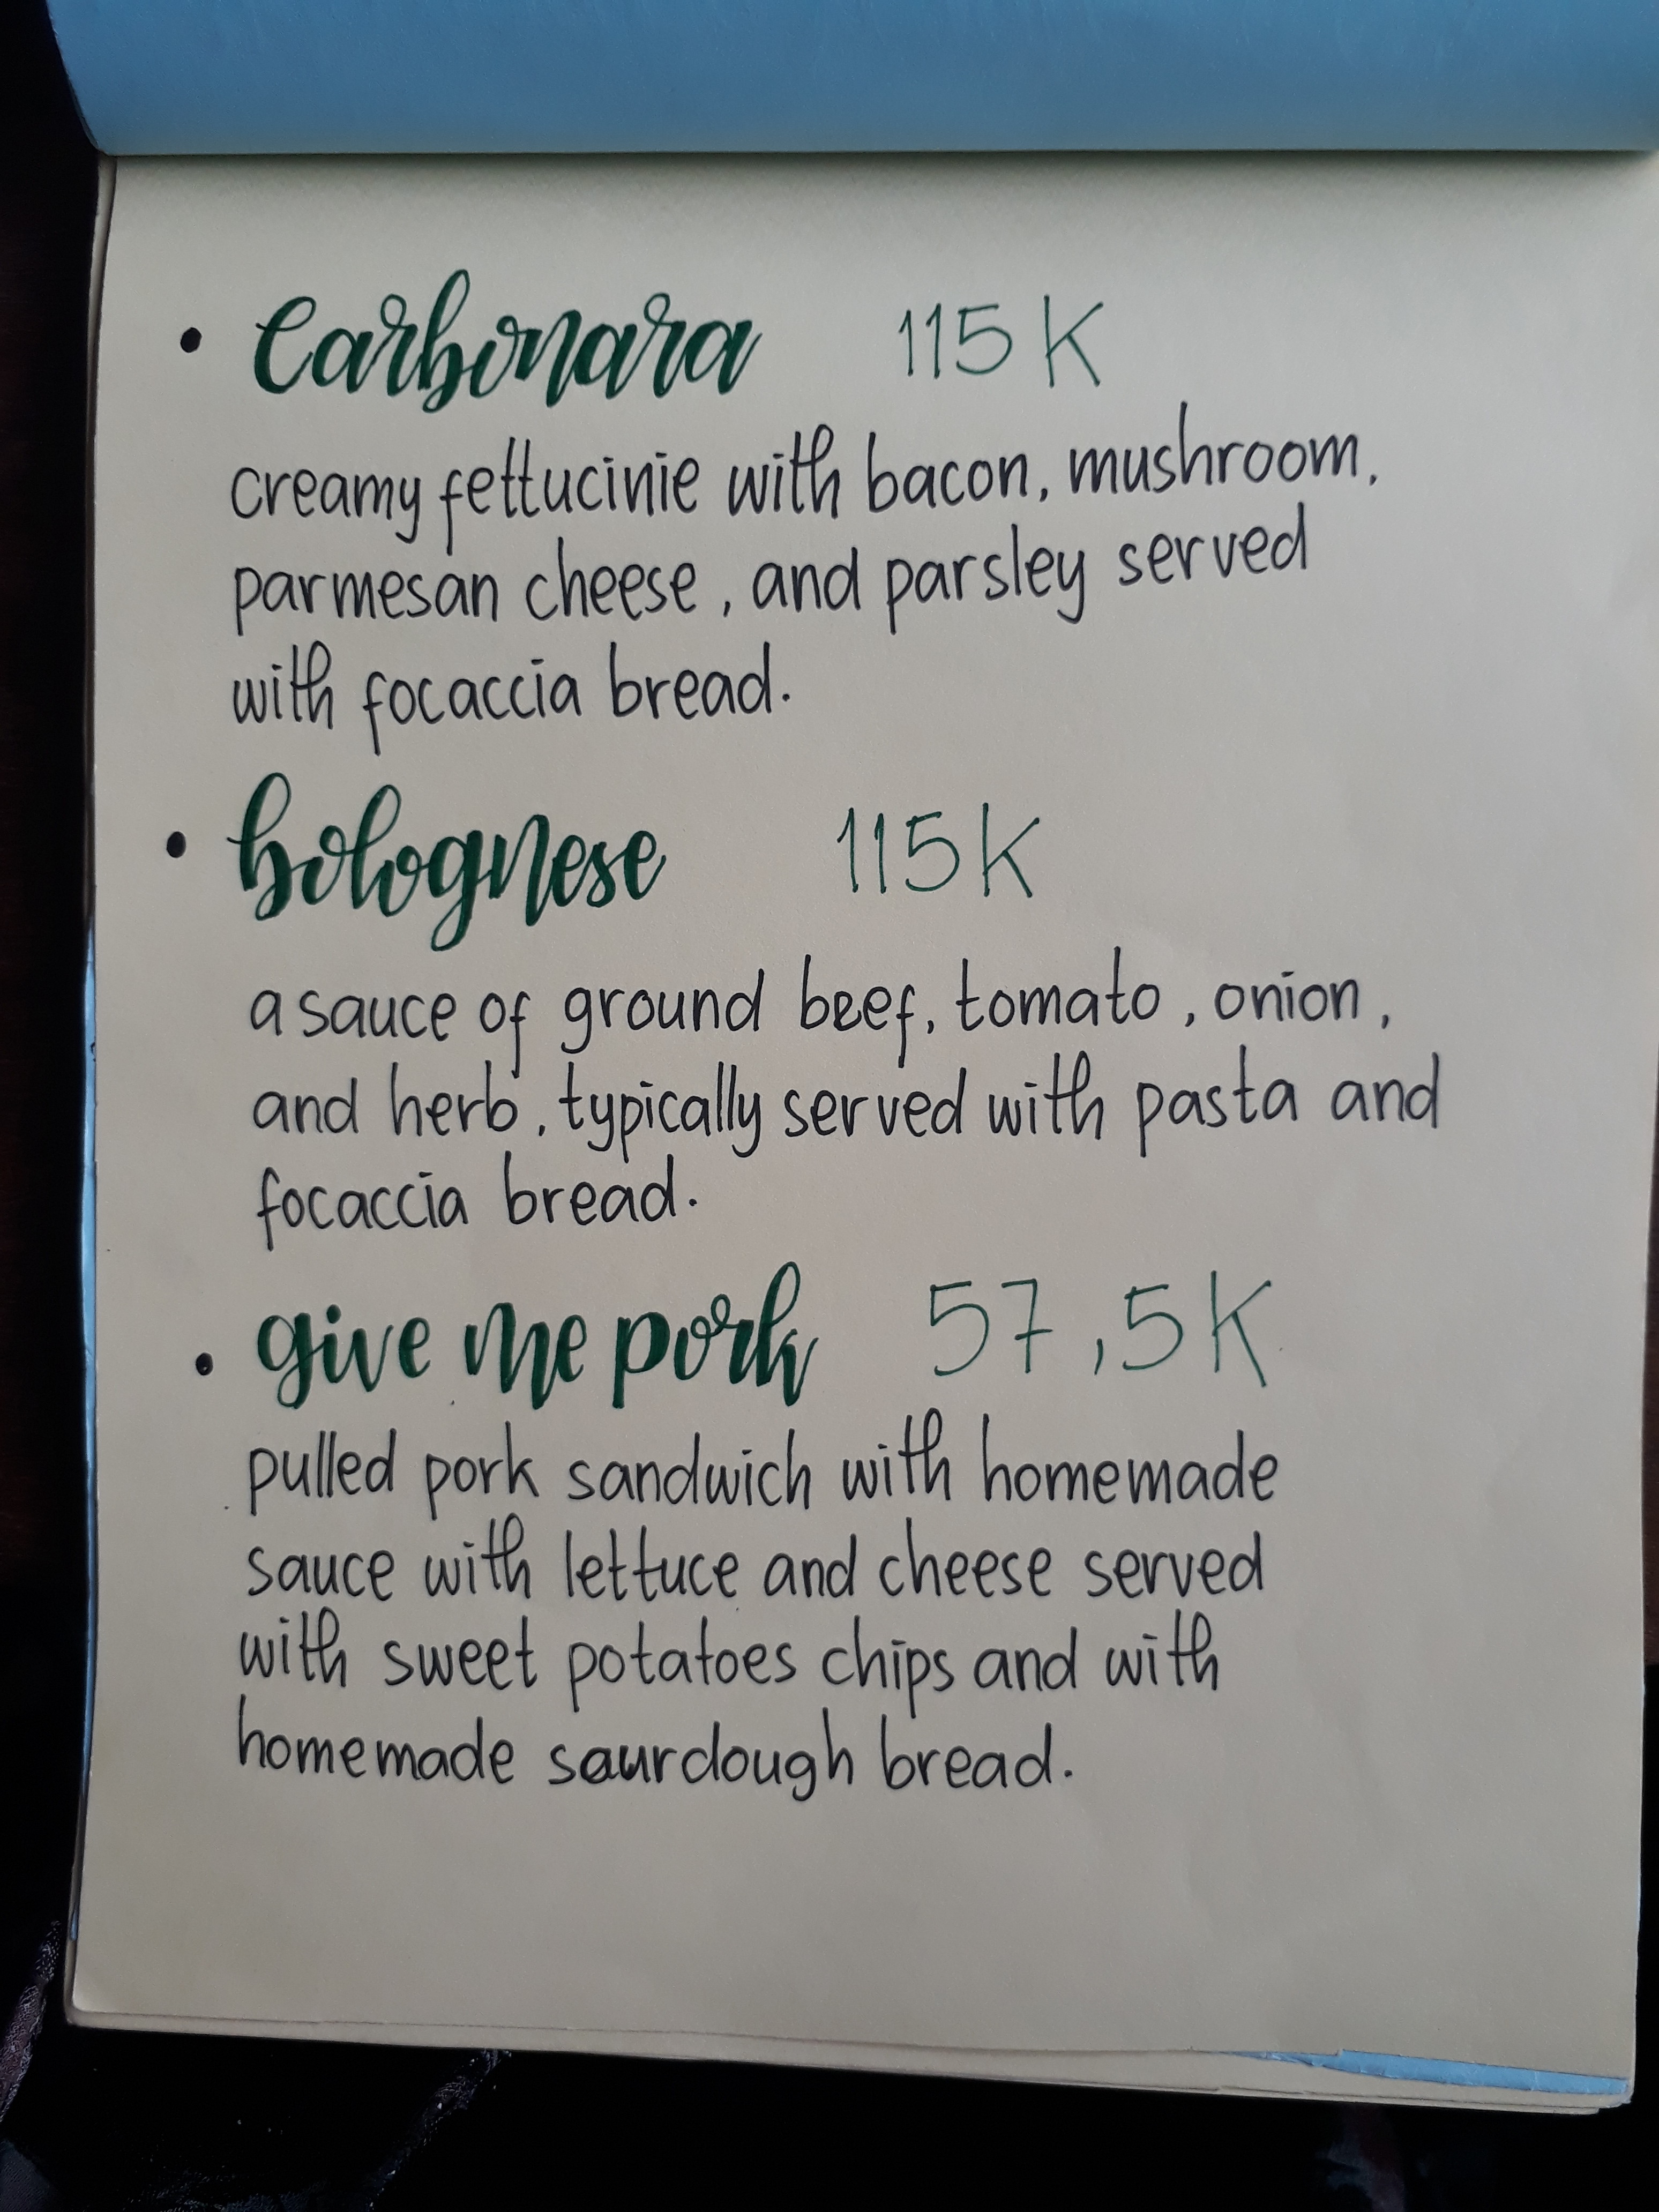 • Carbonara 115K
creamy fettucinie with bacon, mushroom,
parmesan cheese, and parsley served
with focaccia bread.
• bolognese 115K
a sauce of ground beef, tomato, onion,
and herb, typically served with pasta and
focaccia bread.
• give me pork 57,5K
pulled pork sandwich with homemade
sauce with lettuce and cheese served
with sweet potatoes chips and with
homemade saurdough bread.